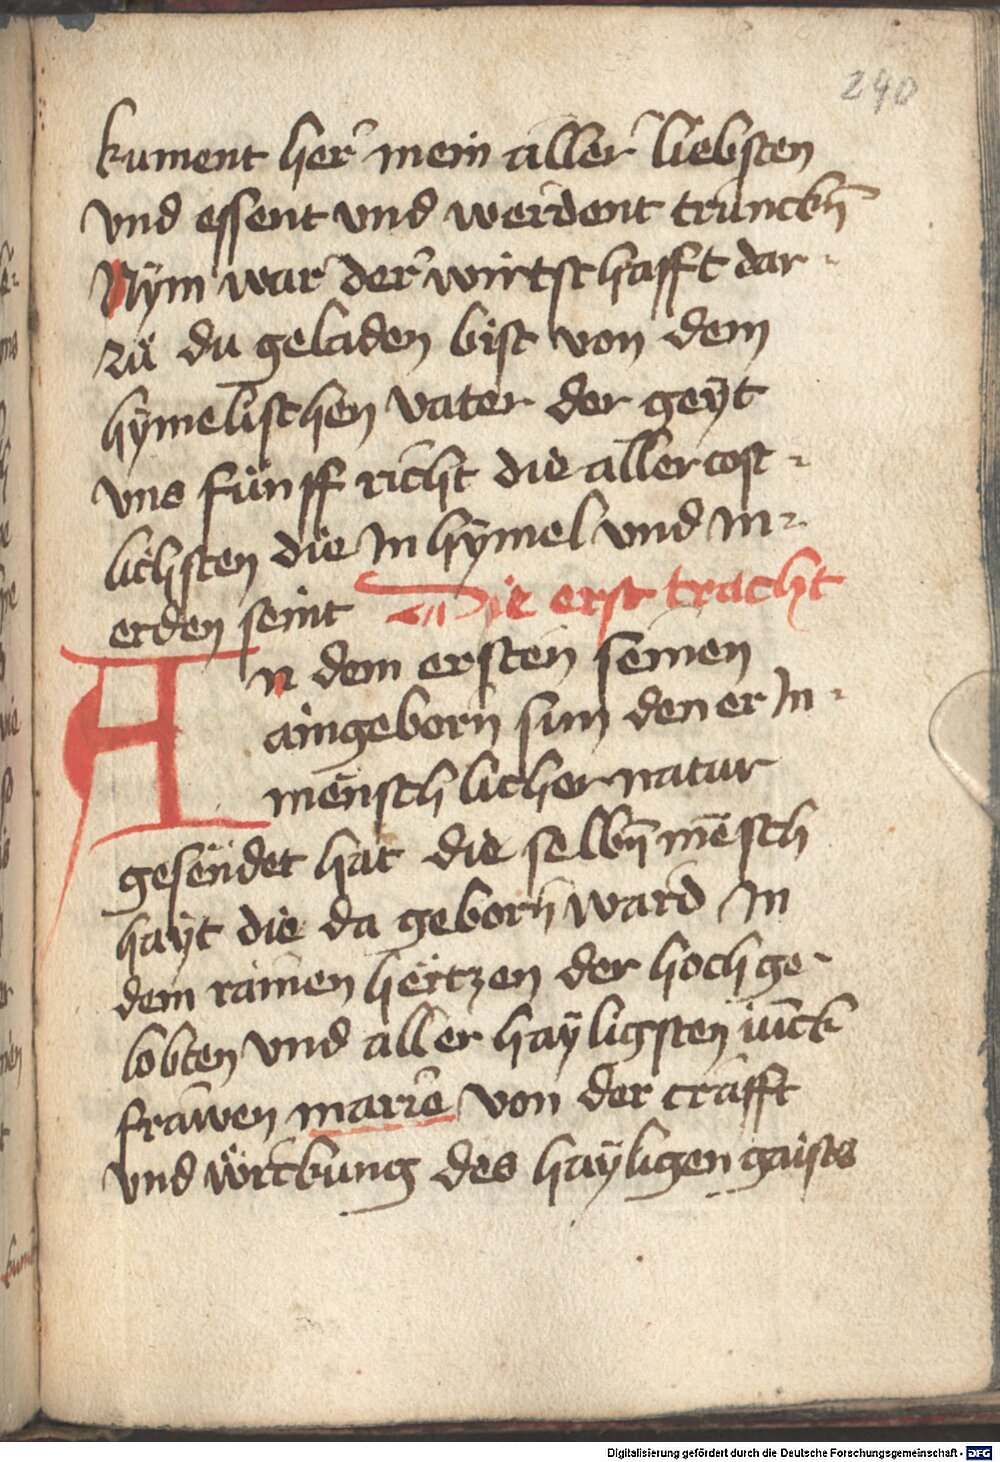 240
kument her mein aller liebsten
vnd essent vnd werdent trunckn̄
Nÿm war der wirtschafft dar-
zů du geladen bist von dem
hÿmelischen vater der geÿt
vns fünff richt die aller cost-
lichsten die In hÿmel vnd In-
erden seint Die erst tracht
An dem ersten seinen
aingeborn sun den er In-
menschlicher natur
gesendet hat die selbn̄ mēsch
haÿt die da geborn ward In
dem rainen hertzen der hochge-
lobten vnd aller haÿligsten iūck
frawen marie von der crafft
vnd würckung des haÿligen gaists
Digitalisierung gefördert durch die Deutsche Forschungsgemeinschaft - DFG